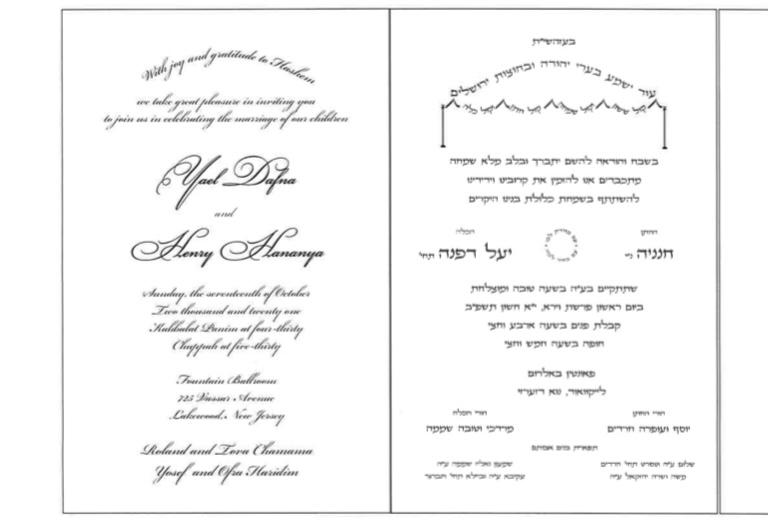 With joy and gratitude to Hashem
we take great pleasure in inviting you
to join us in celebrating the marriage of our children
Yael Dafna
and
Henry Hananya
Sunday, the seventeenth of October
Two thousand and twenty one
Kabbalat Panim at four-thirty
Chuppah at five-thirty
Fountain Ballroom
725 Vassar Avenue
Lakewood, New Jersey
Roland and Tova Chamama
Yosef and Ofra Haridim
בעזהשי״ת
עוד ישמע בערי יהודה ובחוצות ירושלים
קול ששון קול שמחה קול חתן קול כלה
בשבח והודאה להשם יתברך ובלב מלא שמחה
מתכבדים אנו להזמין את קרובינו וידידינו
להשתתף בשמחת כלולת בנינו היקרים
החתן
הכלה
חנניה ני״ו
יעל דפנה תחי׳
שתתקיים בע״ה בשעה טובה ומוצלחת
ביום ראשון פרשת וירא, י״א חשון תשפ״ב
קבלת פנים בשעה ארבע וחצי
חופה בשעה חמש וחצי
פאונטן באלרום
לייקוואוד, נוא דזערזי
הורי החתן
הורי הכלה
יוסף ועופרה חרדים
מרדכי וטובה שממה